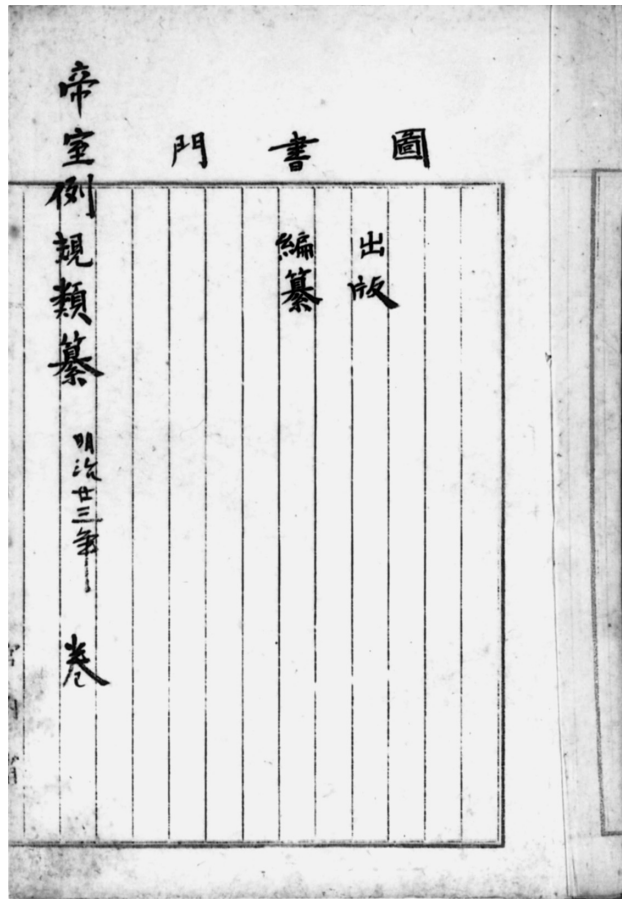 圖書門
出版
編纂
帝室例規類纂 明治廿三年 卷
宮内省